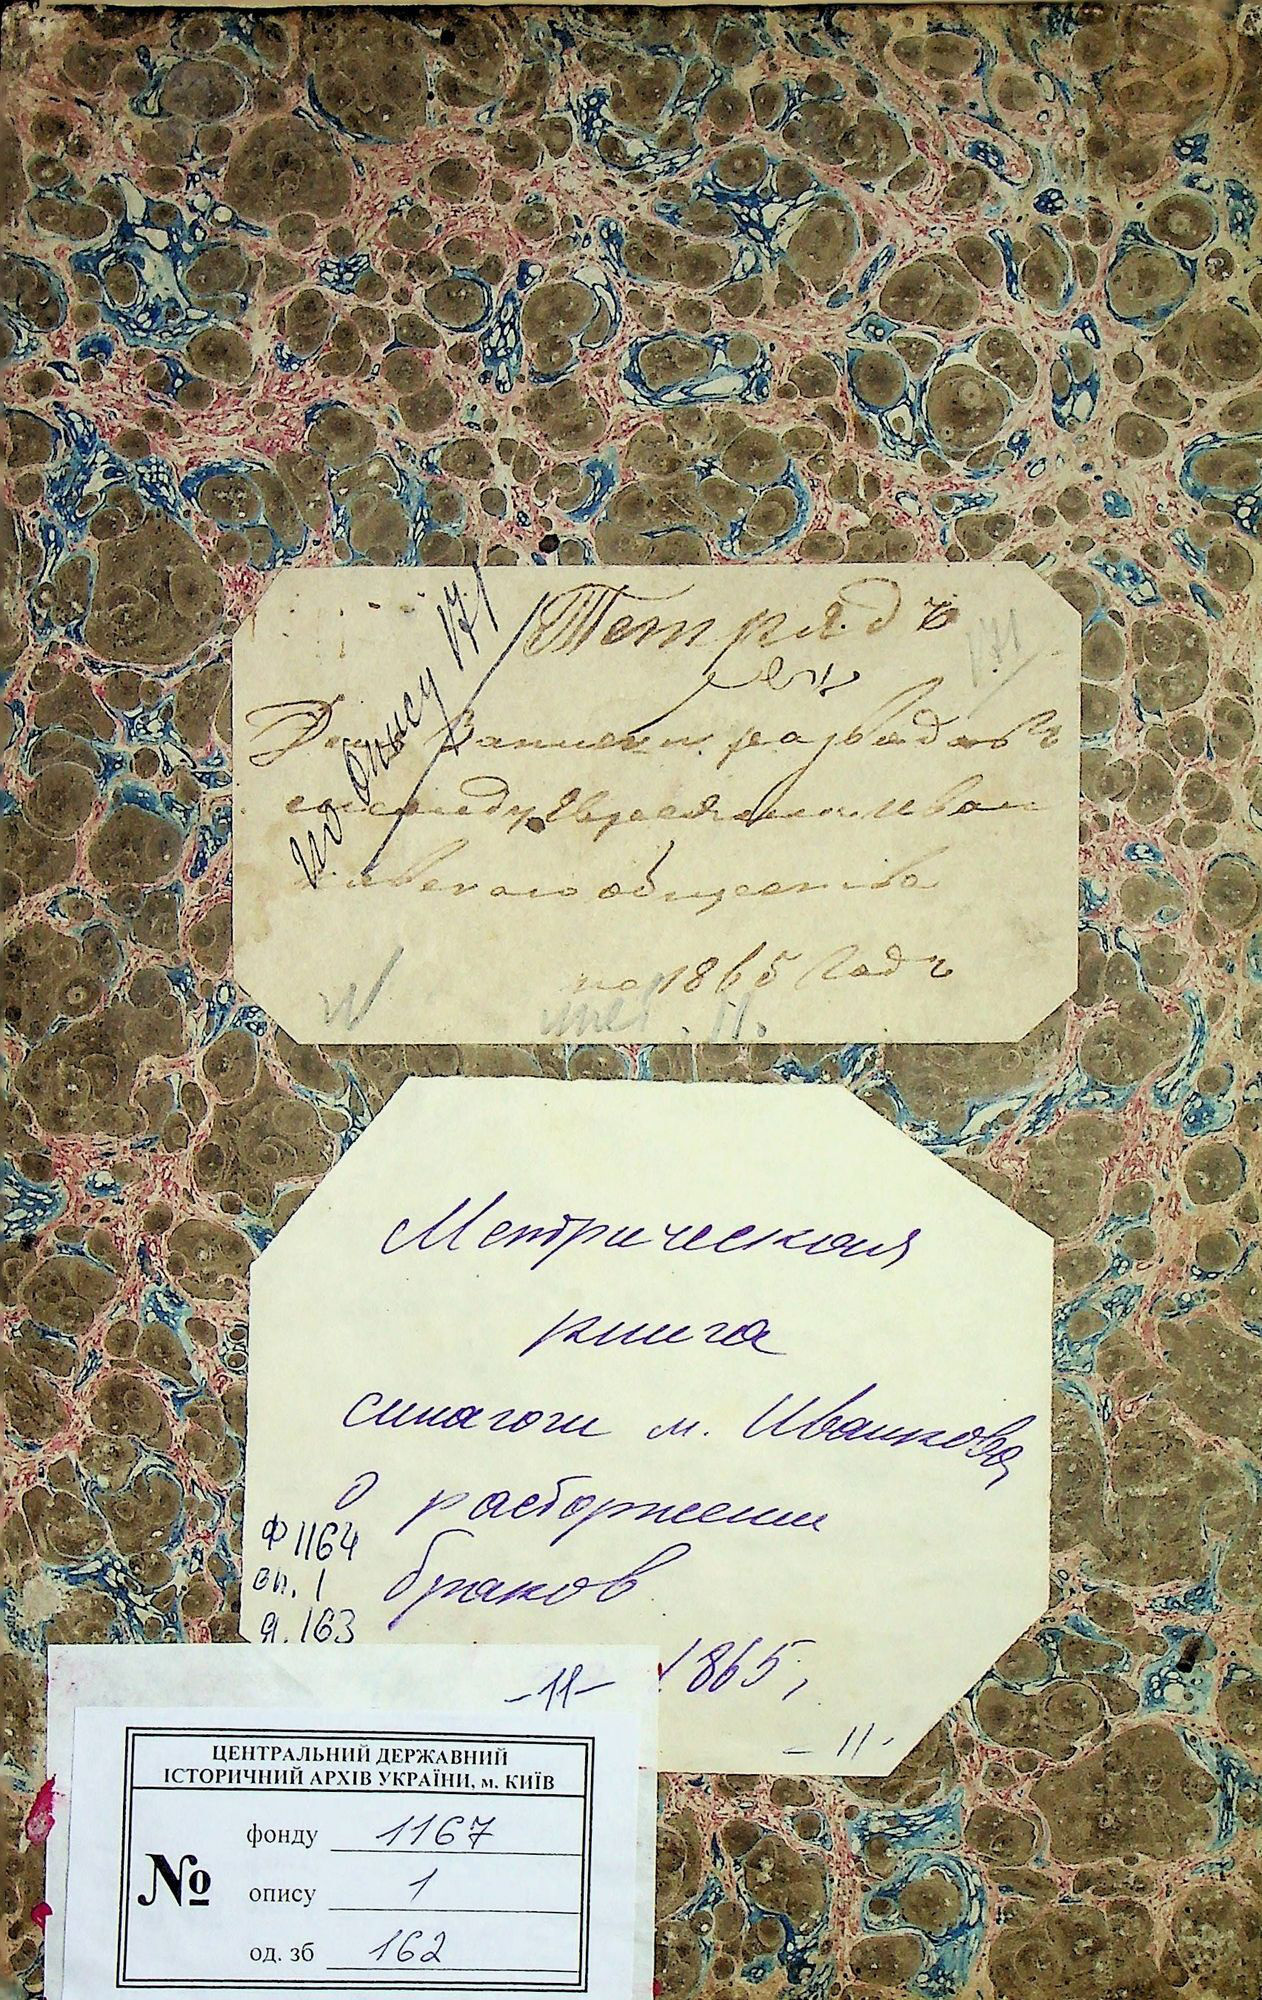 по опису 171
Тетрадь
171
Для Записки разводовъ
между Евреями Иван
ковского общества
на 1865 Годъ
Метрическая
книга
синагоги м. Иванкова
о расторжении
браков
1865,
-11-
Ф 1164
оп. 1
я. 163
-11-
ЦЕНТРАЛЬНИЙ ДЕРЖАВНИЙ
ІСТОРИЧНИЙ АРХІВ УКРАЇНИ, м. КИЇВ
№
фонду 1167
опису 1
од. зб 162